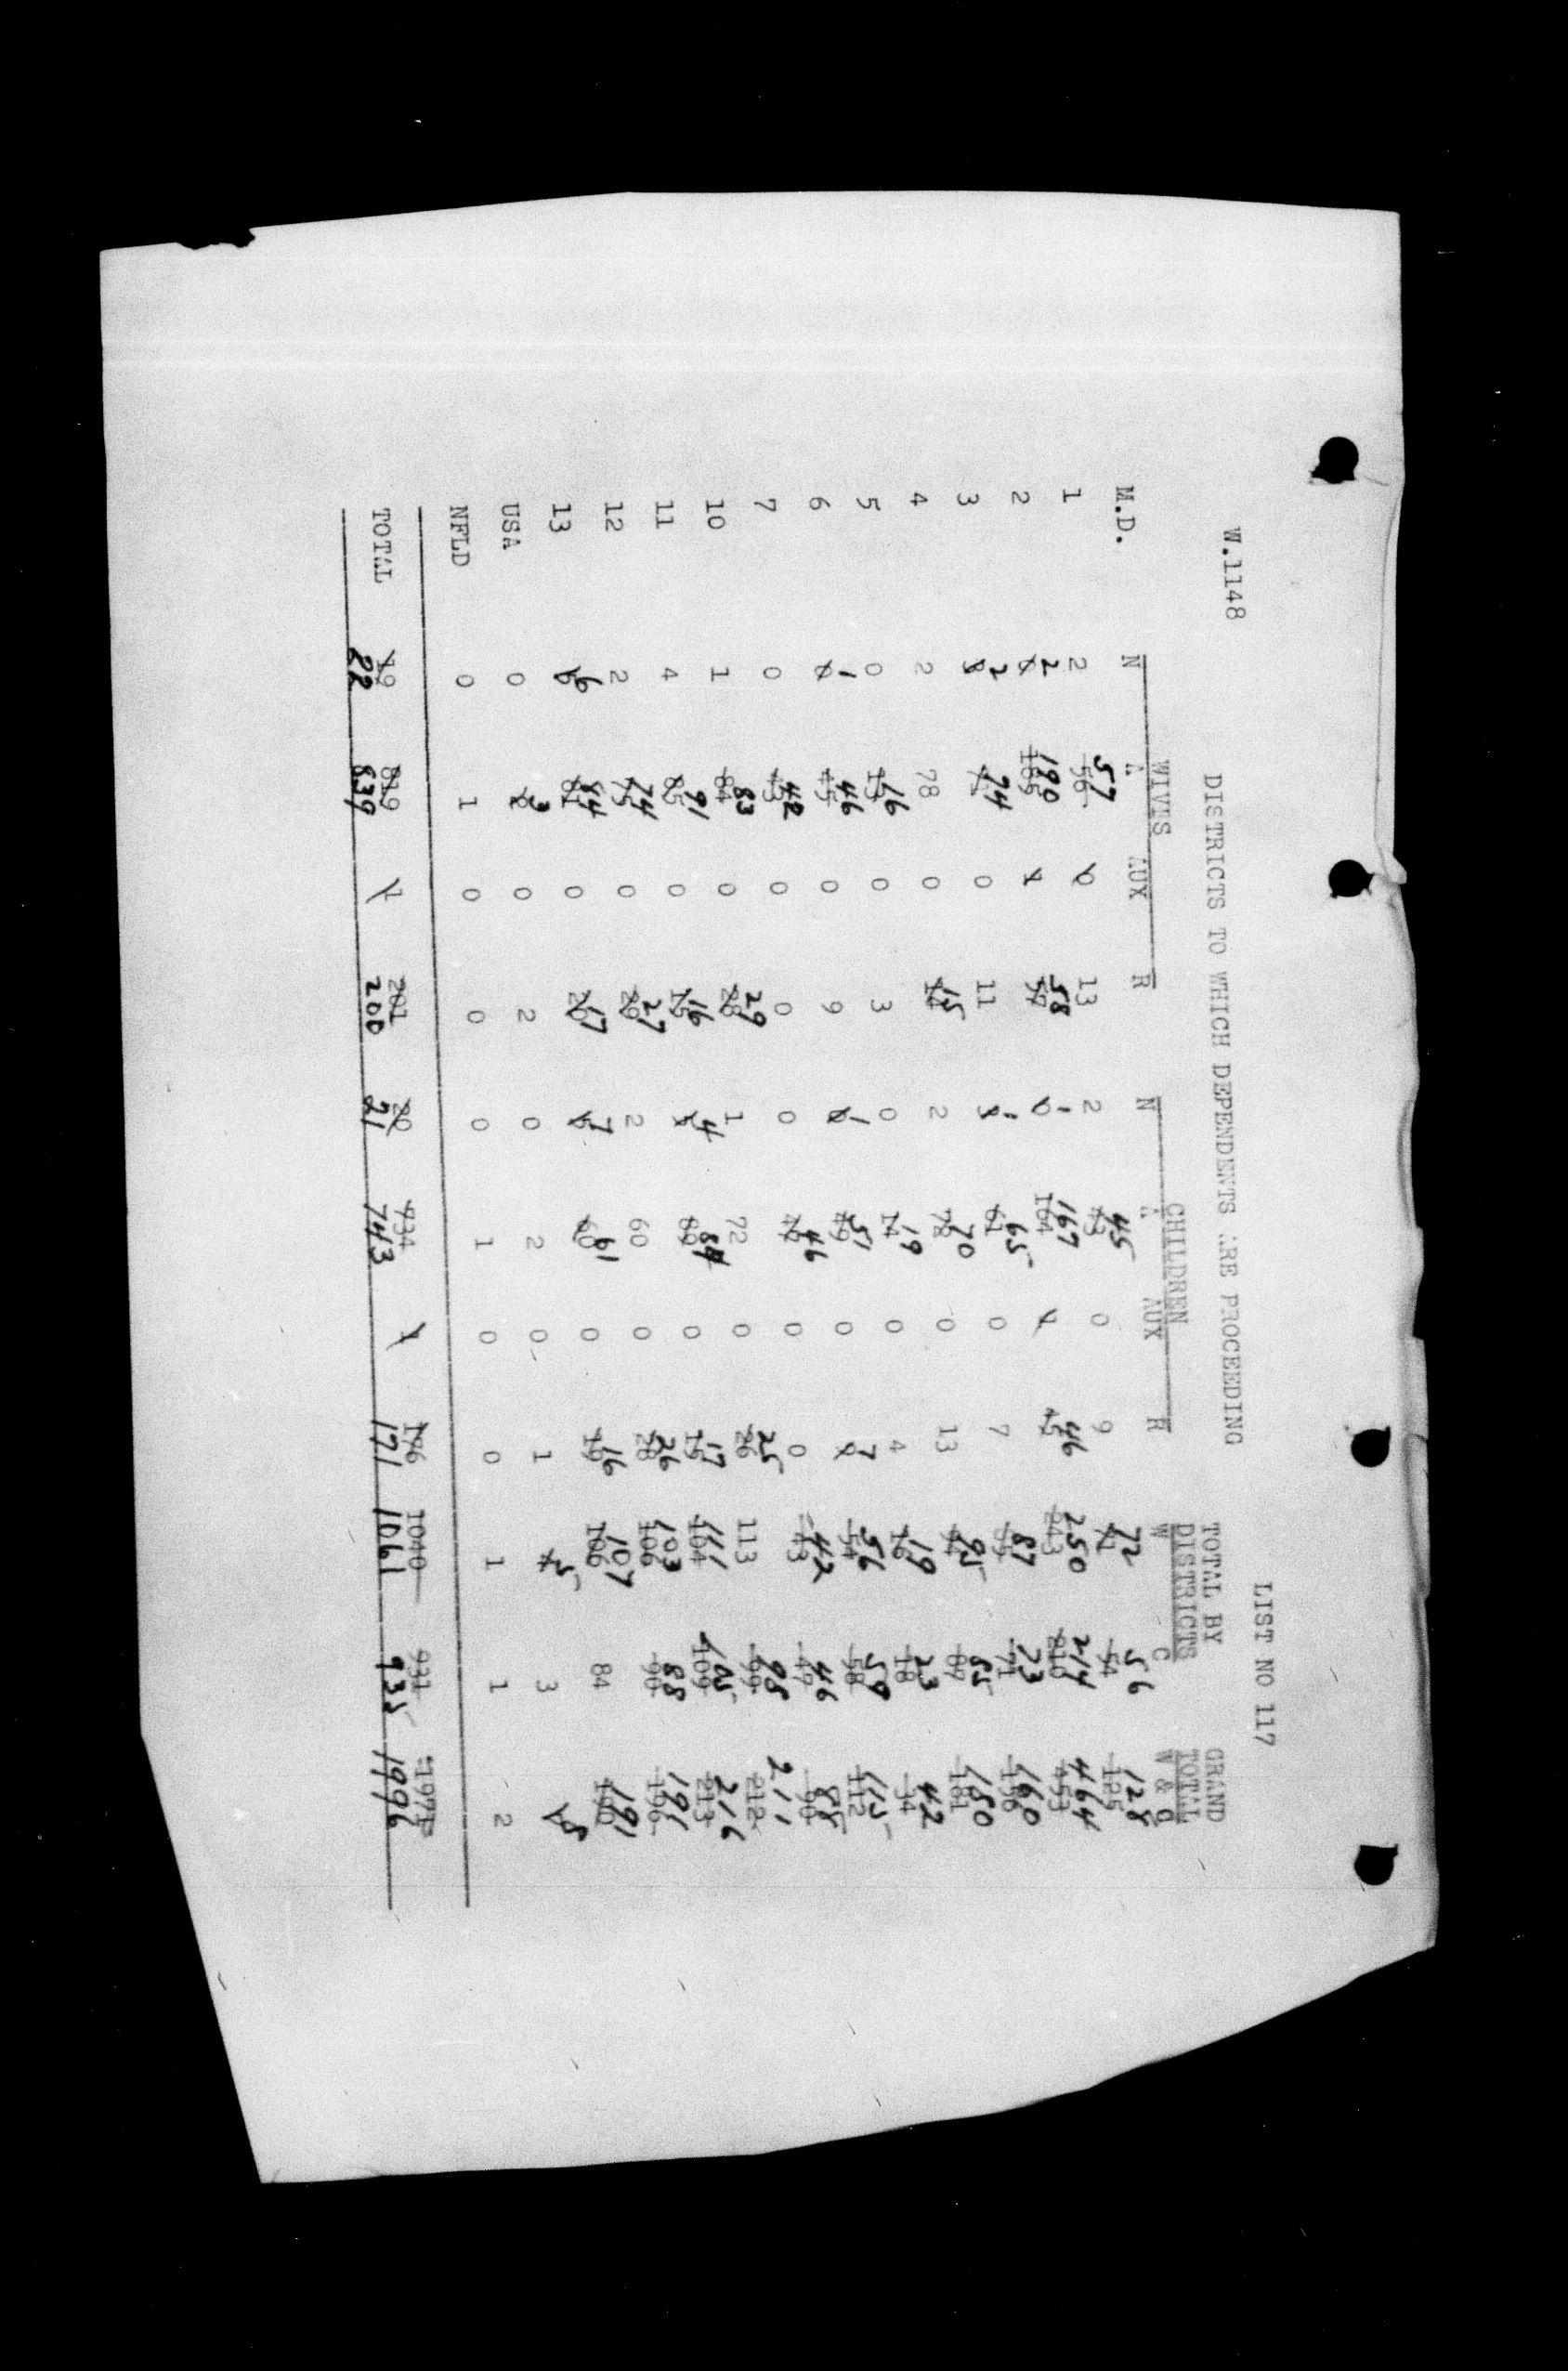 W.1148 LIST NO 117
DISTRICTS TO WHICH DEPENDENTS ARE PROCEEDING
TOTAL BY GRAND
WIVES CHILDREN DISTRICTS TOTAL
M.D. N A AUX R N A AUX R W C W & C
1 2 56 57 0 13 2 43 45 0 9 71 72 54 56 125 128
2 2 185 190 1 57 58 0 - 164 167 1 45 46 243 250 210 214 453 464
3 2 74 0 11 - 61 65 0 7 87 71 73 156 160
4 2 78 0 14 15 2 72 70 0 13 94 95 87 85 181 180
5 0 13 16 0 3 0 14 19 0 4 16 19 18 23 34 42
6 0 1 45 46 0 9 0 1 49 51 0 9 7 54 56 58 59 112 115
7 0 43 42 0 0 0 47 46 0 0 43 42 47 46 90 88
10 1 84 83 0 28 29 1 72 0 26 25 113 99 98 212 211
11 4 85 91 0 15 16 4 89 84 0 15 17 104 111 109 105 213 216
12 2 75 74 0 29 27 2 60 0 28 26 106 103 90 88 196 191
13 6 81 84 0 20 17 7 60 61 0 19 16 106 107 84 190 191
USA 0 2 3 0 2 0 2 0 1 4 5 3 8
NFLD 0 1 0 0 0 1 0 0 1 1 2
TOTAL 19 819 1 201 20 734 1 176 1040 931 1971
22 839 200 21 743 171 1061 935 1996